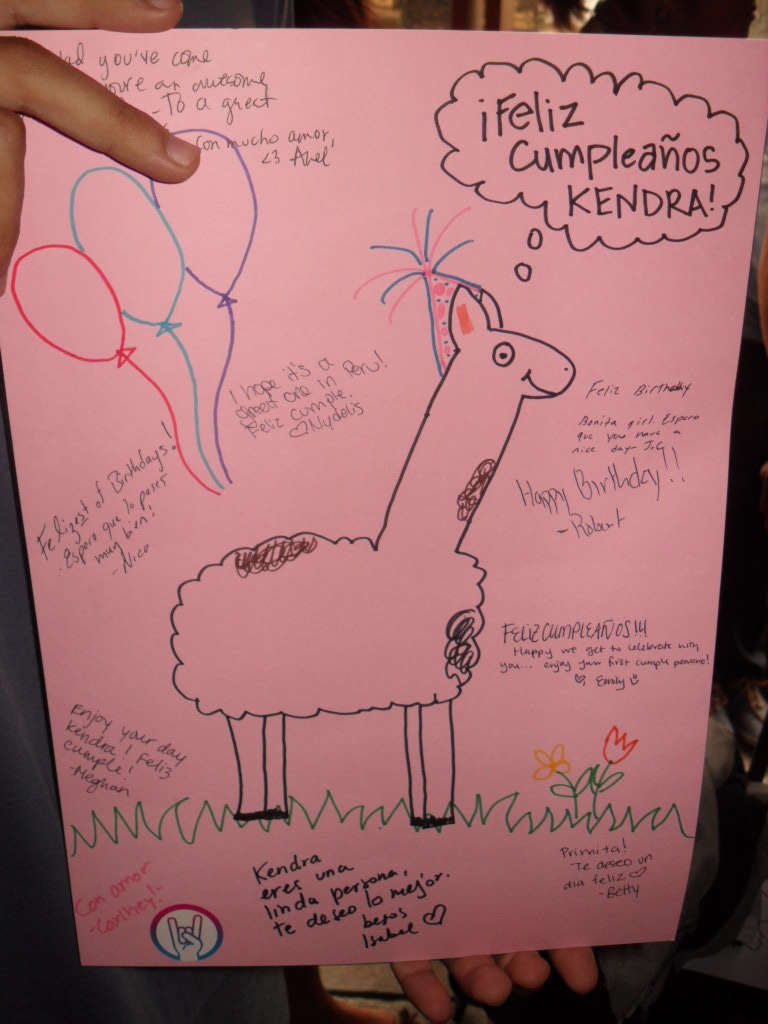 you've come
you're an awesome
- To a great
con mucho amor,
<3 Axel
¡Feliz
Cumpleaños
KENDRA!
I hope it's a
great one in Peru!
Feliz cumple.
♡ Nydelis
Feliz Birthday
Bonita girl. Espero
que you have a
nice day - J.G
Happy Birthday!!
- Robert
Felizest of Birthdays!
- Espero que lo pases
muy bien!
- Nico
FELIZ CUMPLEAÑOS!!!
Happy we get to celebrate with
you... enjoy your first cumple peruano!
♡, Emily
Enjoy your day
Kendra! Feliz
cumple!
- Meghan
Primita!
Te deseo un
día feliz ♡
- Betty
Con amor
Kendra
eres una
linda persona,
te deseo lo mejor.
besos
Isabel ♡